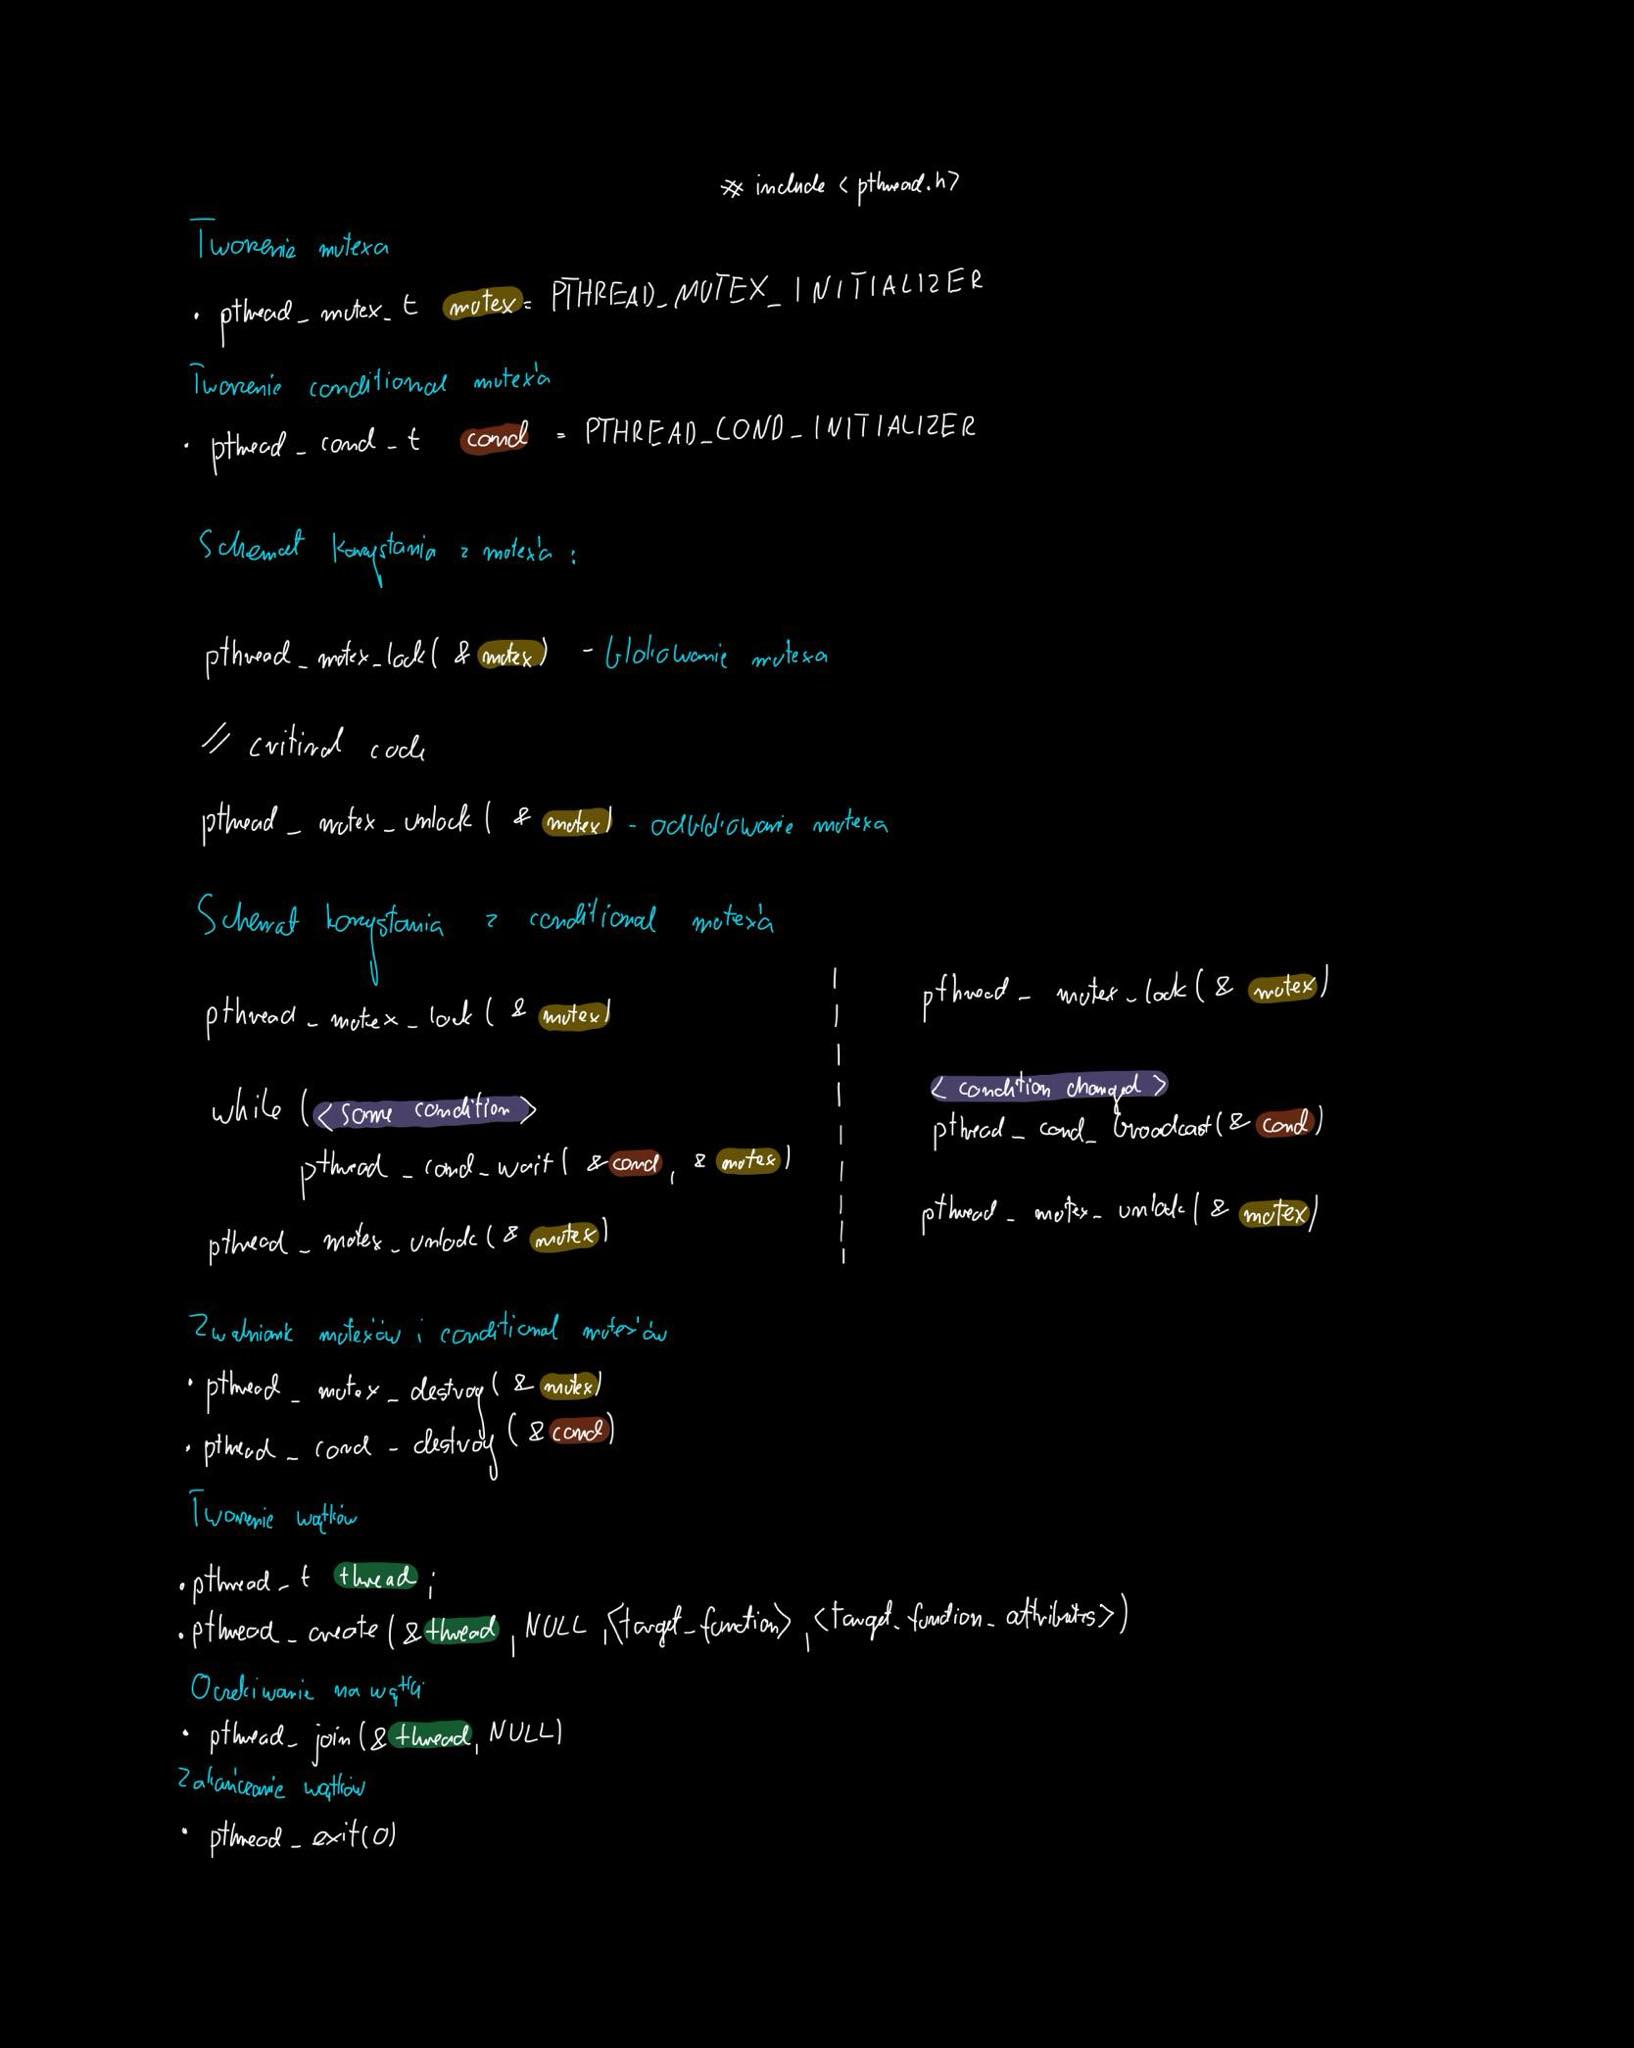 # include <pthread.h>
Tworzenie mutexa
• pthread_mutex_t mutex = PTHREAD_MUTEX_INITIALIZER
Tworzenie conditional mutex'a
• pthread_cond_t cond = PTHREAD_COND_INITIALIZER
Schemat korzystania z mutex'a :
pthread_mutex_lock( & mutex) - blokowanie mutexa
// critical code
pthread_mutex_unlock( & mutex) - odblokowanie mutexa
Schemat korzystania z conditional mutex'a
pthread_mutex_lock( & mutex)
while (<some condition>
pthread_cond_wait( &cond, & mutex)
pthread_mutex_unlock( & mutex)
pthread_mutex_lock( & mutex)
<condition changed>
pthread_cond_broadcast( & cond)
pthread_mutex_unlock( & mutex)
Zwalnianie mutex'ów i conditional mutex'ów
• pthread_mutex_destroy( & mutex)
• pthread_cond_destroy( & cond)
Tworzenie wątków
• pthread_t thread ;
• pthread_create( &thread, NULL, <target_function>, <target_function_attributes>)
Oczekiwanie na wątki
• pthread_join( &thread, NULL)
Zakańczanie wątków
• pthread_exit(0)